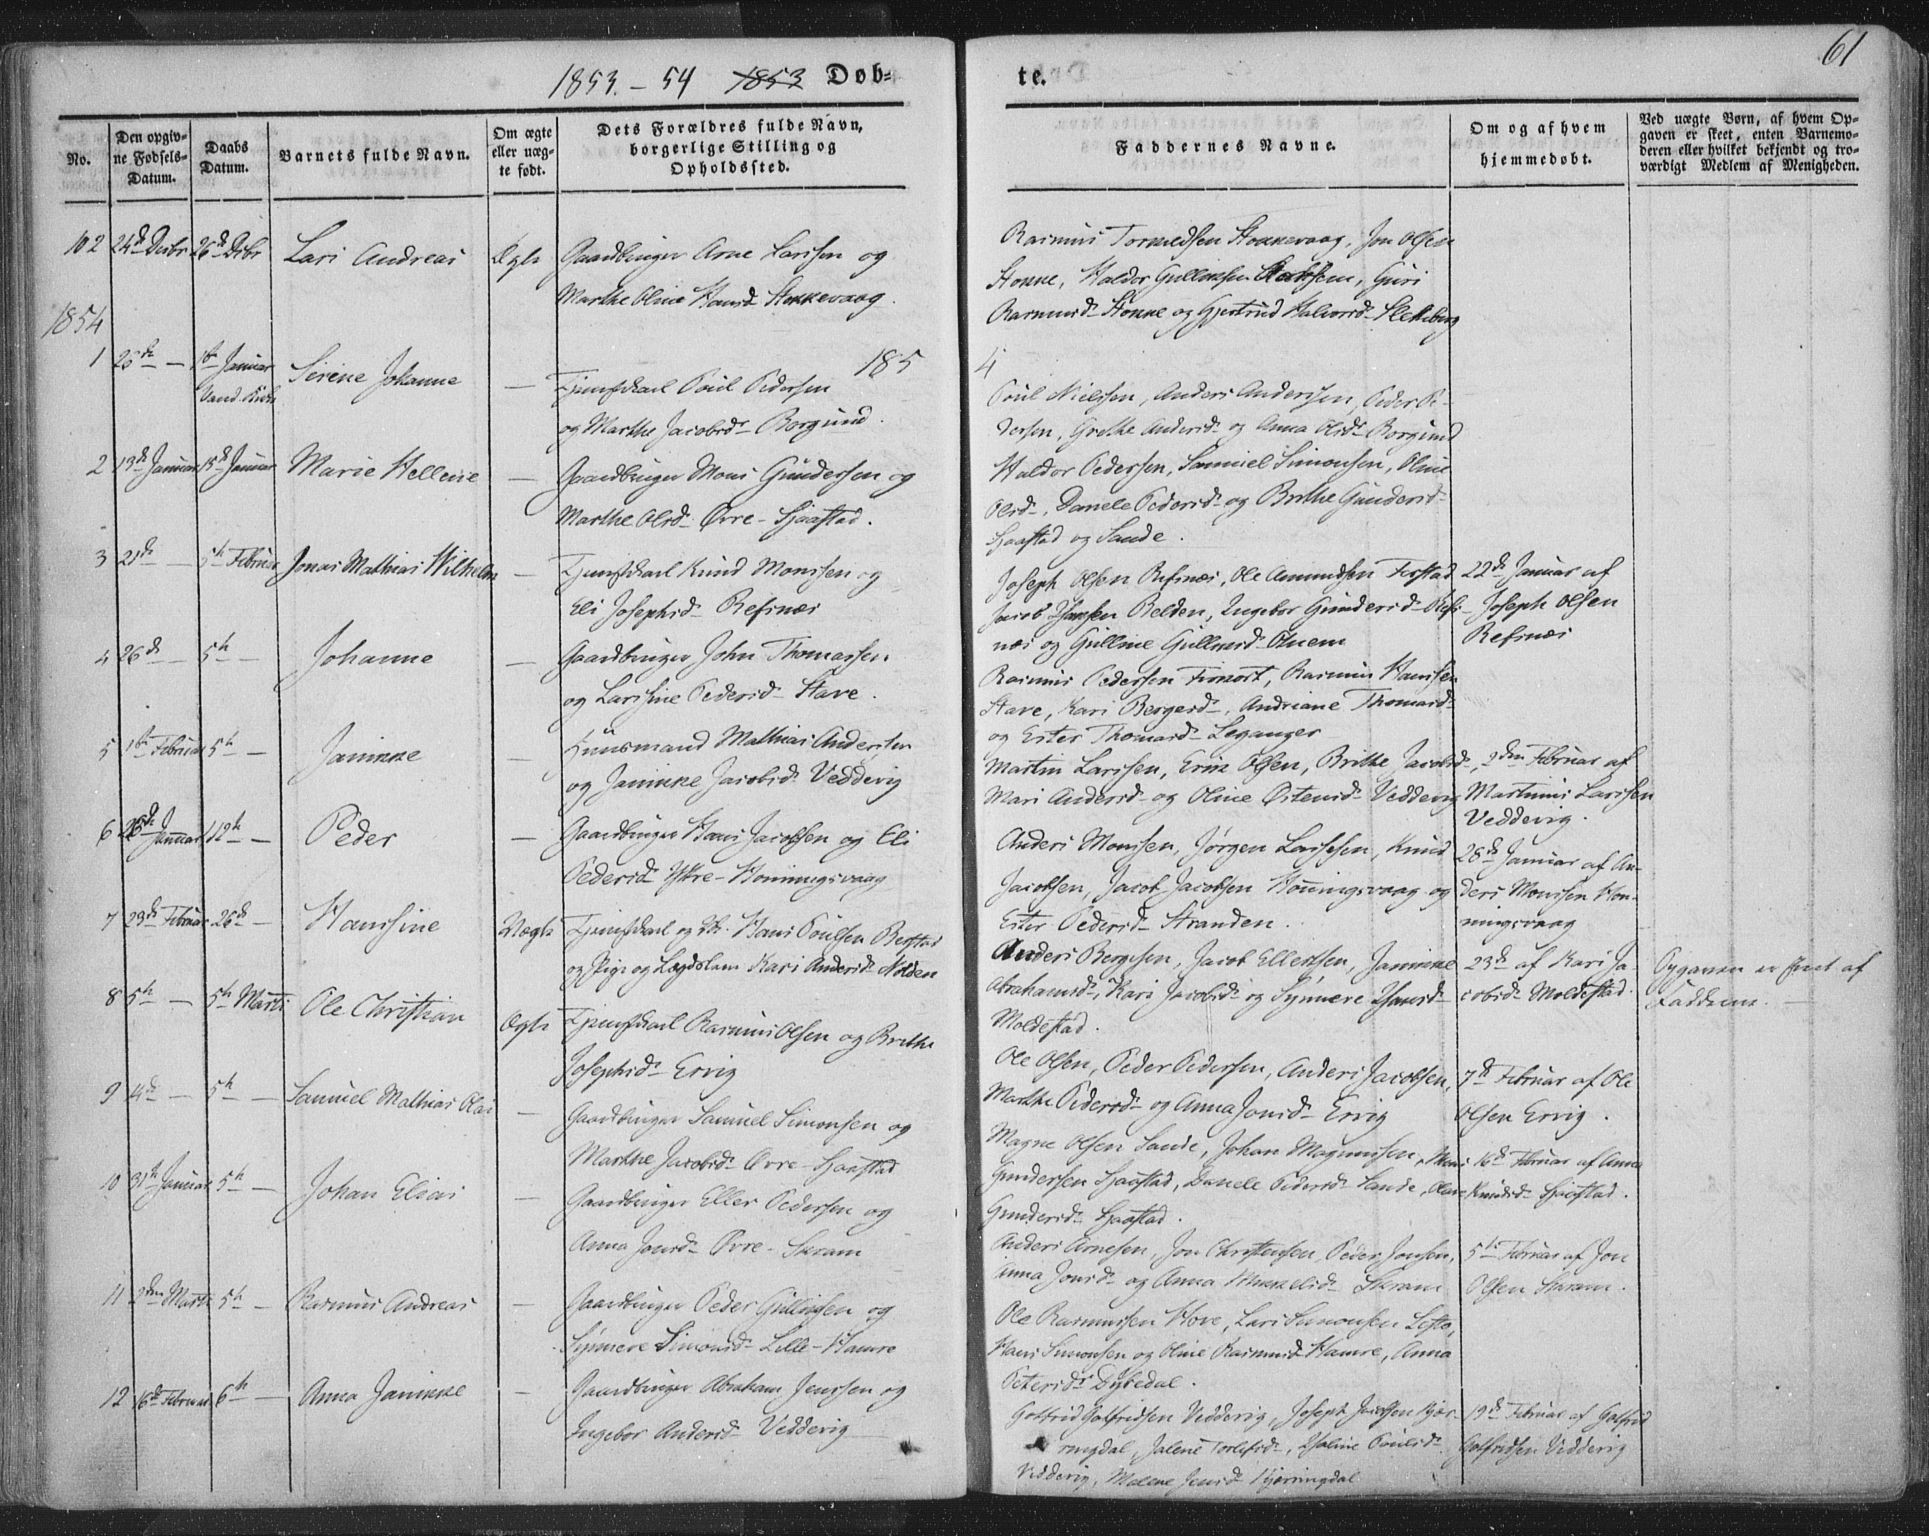 61
1853.-54 1853 Døb-
te.
No.
Den opgiv-
ne Fødsels-
Datum.
Daabs
Datum.
Barnets fulde Navn.
Om ægte
eller uæg-
te født.
Dets Forældres fulde Navn,
borgerlige Stilling og
Opholdssted.
Faddernes Navne.
Om og af hvem
hjemmedøbt.
Ved uægte Børn, af hvem Op-
gaven er skeet, enten Barnemo-
deren eller hvilket bekjendt og tro-
værdigt Medlem af Menigheden.
102 24d Decbr 26d Dcbr Lars Andreas Ægte Gaardbruger Arne Larssen og
Marthe Oline Hansd. Stokkevaag.
Rasmus Tormodsen Stokkevaag, Jon Olsen
Stokke, Haldor Gullaksen, Guri
Rasmusd. Stokke og Gjertrud Halvorsd. Flekeberg
1854
1854
1 26de — 1ste Januar Serine Johanne — Tjenestkarl Poul Pedersen
og Marthe Jacobsd. Borgund.
Poul Nielssen, Anders Anderssen, Peder Pe-
dersen, Grethe Andersd. og Anna Olsd. Borgund
2 13de Januar 15de Januar Marie Hellene — Gaardbruger Mons Gunderssen og
Marthe Olsd. Øvre-Sjaastad.
Haldor Pedersen, Samuel Simonsen, Oline
Olsd., Danele Pedersd. og Brithe Gundersd.
Sjaastad og Sande.
3 21de — 5te Februar Jonas Mathias Wilhelm — Tjenestkarl Knud Monssen og
Eli Josephsd. Refsnæs
Joseph Olsen Refsnæs, Ole Amundsen Ferstad
Jacob Hanssen Belden, Ingebor Gundersd. Refs-
næs og Gulline Gullaksd. Otnem
22de Januar af
Joseph Olsen
Refsnæs
4 26de — 5te — Johanne — Gaardbruger John Thomassen
og Larssine Pedersd. Stave.
Rasmus Pedersen Firnort, Rasmus Hanssen
Stave, Kari Bergesd., Andriane Thomasd.
og Ester Thomasd. Leganger
5 1ste Februar 5te — Janikke — Huusmand Mathias Anderssen
og Janikke Jacobsd. Veddevig
Martin Larssen, Erik Olsen, Brithe Jacobsd.,
Mari Andersd. og Oline Østensd. Veddevig
2den Februar af
Martinus Larssen
Veddevig.
6 26de Januar 12te — Peder — Gaardbruger Hans Jacobsen og Eli
Pedersd. Ytre-Honningsvaag
Anders Monssen, Jørgen Larssen, Knud
Jacobsen, Jacob Jacobsen Honningsvaag og
Ester Pedersd. Stranden.
28de Januar af An-
ders Monssen Hon-
ningsvaag
7 23de Februar 26de — Hanssine Uægte Tjenestkarl og Uk. Hans Poulsen Berstad
og Pige og Lægdslem Kari Andersd. Nolden
Anders Bergesen, Jacob Ellertsen, Janikke
Abrahamsd., Kari Jacobsd. og Synneve Hansd.
Moldestad.
23de af Kari Ja-
cobsd. Moldestad.
Opgaven er skeet af
Faddrene. —
8 5te — 5te Marti Ole Christian Ægte Tjenestkarl Rasmus Olsen og Brithe
Josephsd. Ervig
Ole Olsen, Peder Pedersen, Anders Jacobsen,
Marthe Pedersd. og Anna Jonsd. Ervig
7de Februar af Ole
Olsen Ervig.
9 4de — 5te — Samuel Mathias Olai — Gaardbruger Samuel Simonsen og
Marthe Jacobsd. Øvre-Sjaastad
Magne Olsen Sande, Johan Magnussen, Mons
Gunderssen Sjaastad, Danele Pedersd. Sande, Olave
Gundersd. Sjaastad.
16de Februar af Anna
Knudsd. Sjaastad.
10 31te Januar 5te — Johan Elias — Gaardbruger Eller Pedersen og
Anna Jonsd. Øvre-Skram
Anders Arnesen, Jon Christensen, Peder Jonsen,
Anna Jonsd. og Anna Mikkelsd. Skram
5te Februar af Jon
Olsen Skram.
11 2den Marti 5te — Rasmus Andreas — Gaardbruger Peder Gullaksen og
Synneve Simonsd. Lille-Hamre
Ole Rasmussen Hove, Lars Simonsen Lefto,
Hans Simonsen og Oline Rasmusd. Hamre, Anna
Petersd. Dybedal.
12 16de Februar 6te — Anna Janikke — Gaardbruger Abraham Jenssen og
Ingebor Andersd. Veddevig
Gotfrid Gotfridsen Veddevig, Joseph Jacobsen Kjør-
ringdal, Jalene Torlefsd., Hsaline Poulsd.
Veddevig, Malene Jensd. Kjørringdal
19de Februar af Gotfrid
Gotfridsen Veddevig